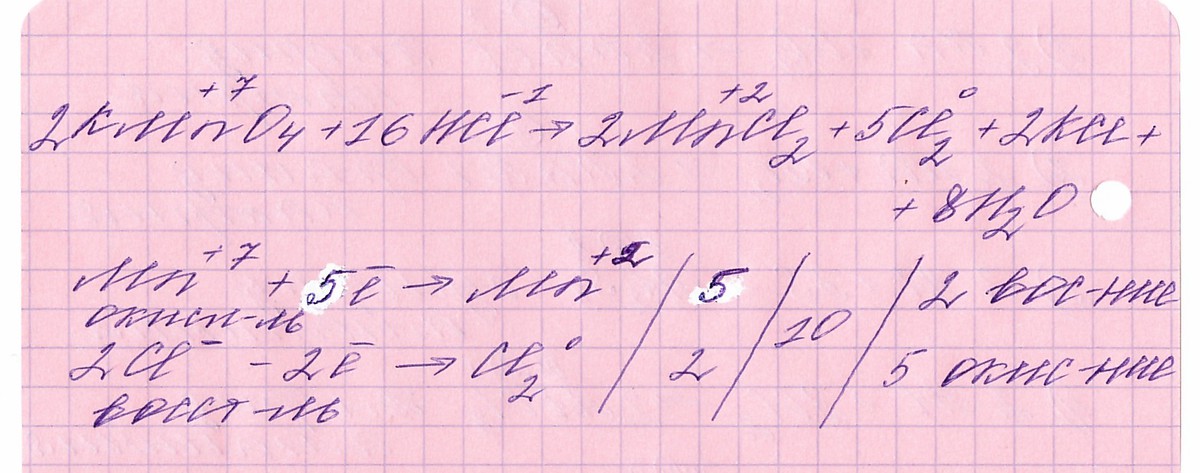 2KMn⁺⁷O₄ + 16HCl⁻¹ → 2Mn⁺²Cl₂ + 5Cl₂⁰ + 2KCl +
+ 8H₂O
Mn⁺⁷ + 5ē → Mn⁺² / 5 / 10 / 2 вос-ние
окисл-ль
2Cl⁻ - 2ē → Cl₂⁰ / 2 / / 5 окис-ние
восст-ль